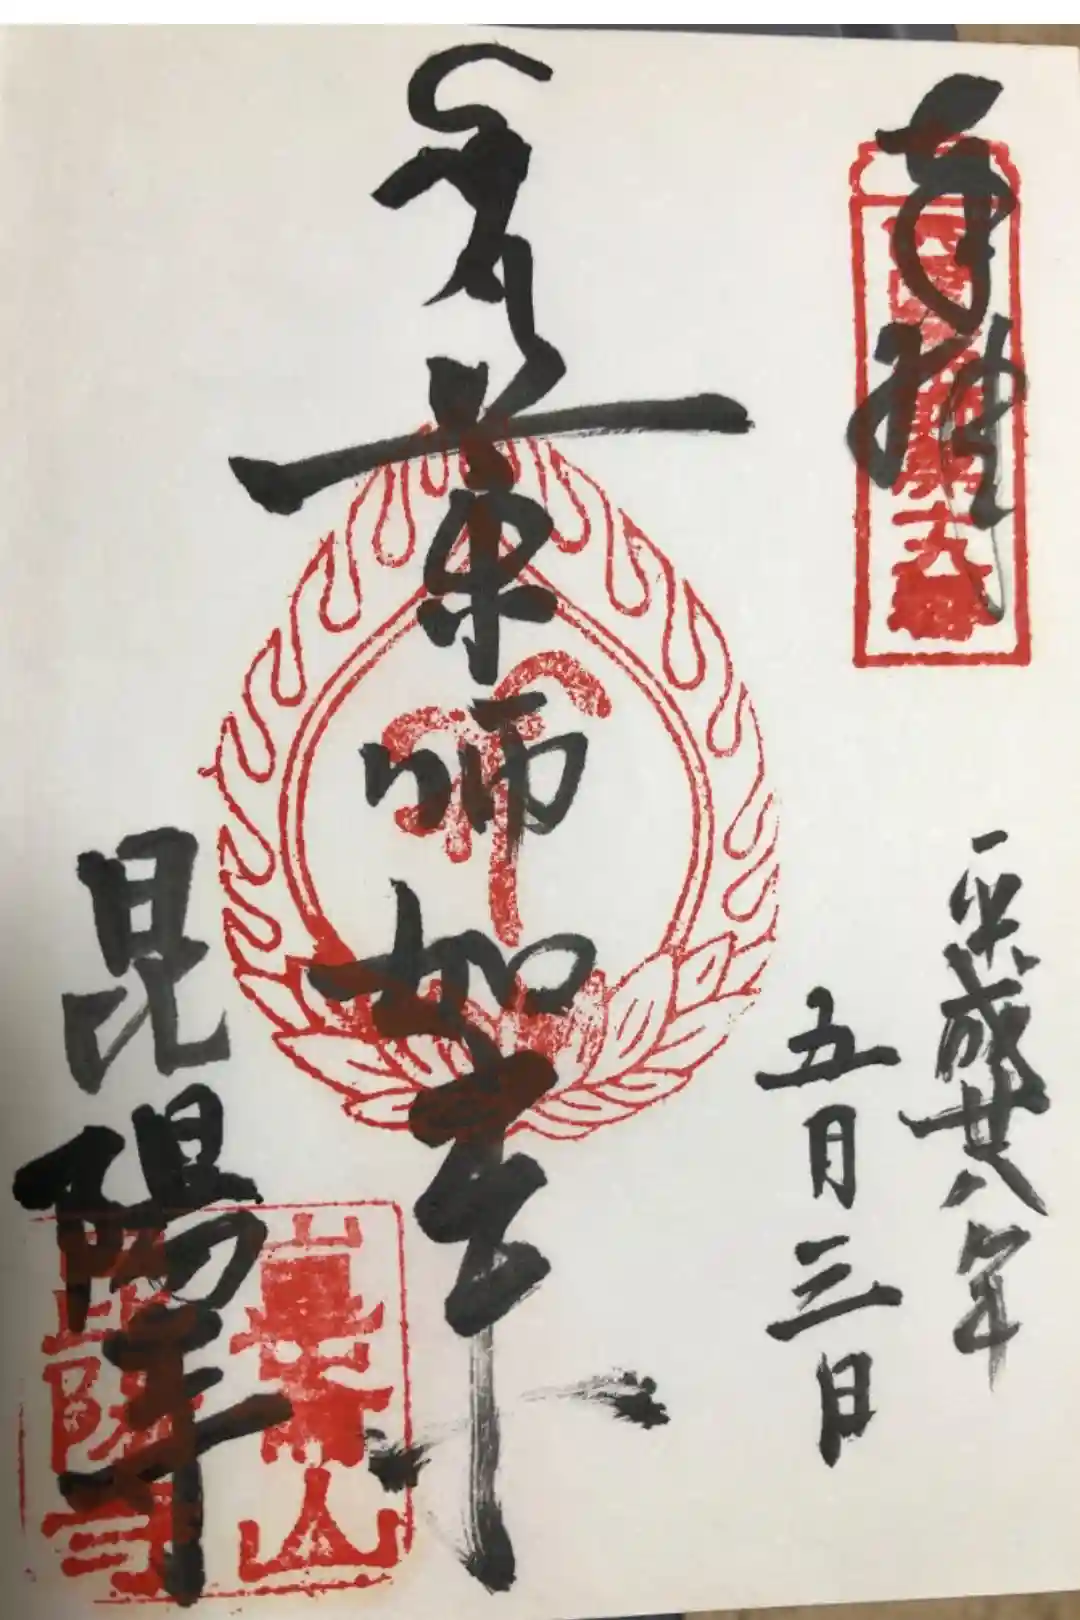 奉拝
平成廿八年
五月三日
薬師如来
昆陽寺
崑崙山
昆陽寺